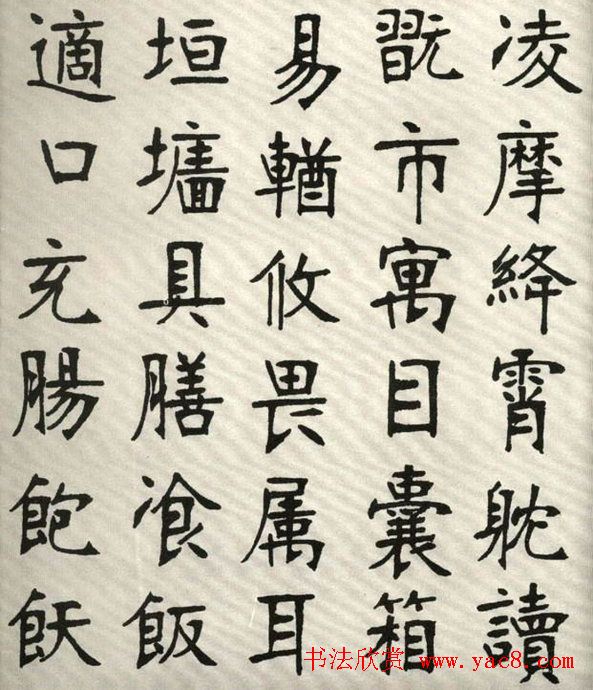 凌摩絳霄躭讀
翫市寓目囊箱
易輶攸畏属耳
垣墻具膳飡飯
適口充腸飽飫
书法欣赏 www.yac8.com